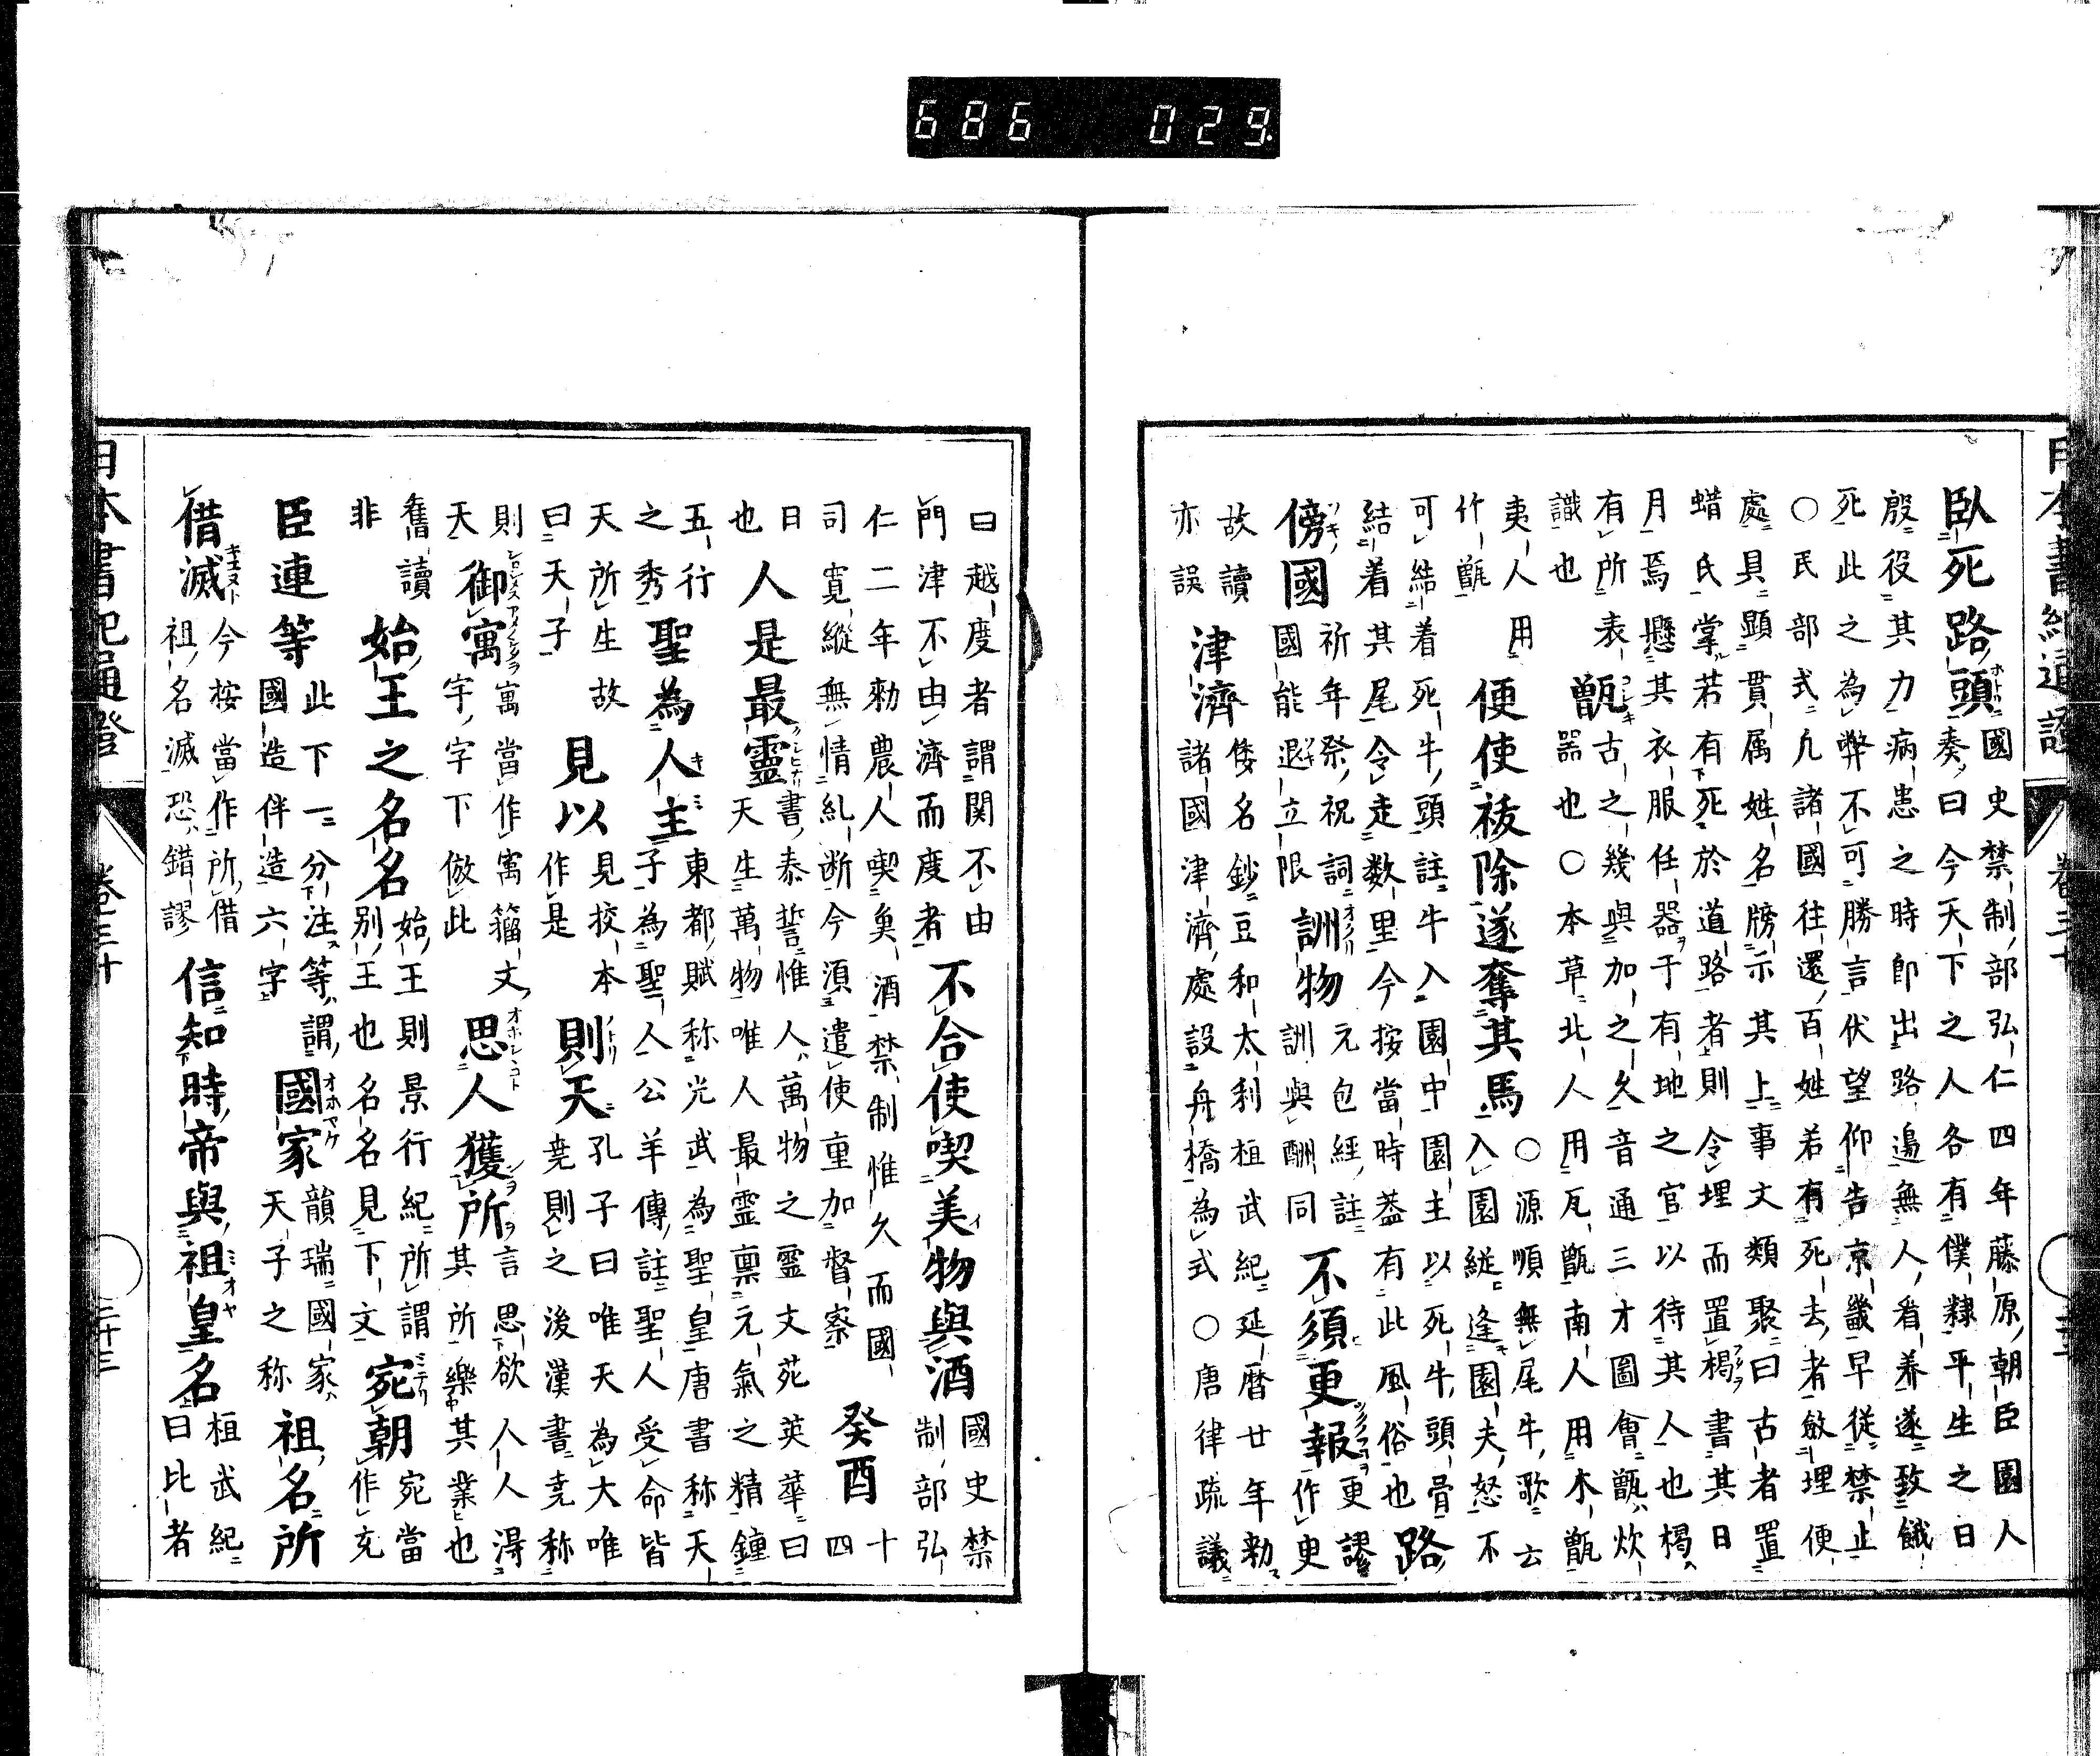 日本書紀通證 卷三十
臥死路頭 國史禁制部弘仁四年藤原朝臣園人 奏曰今天下之人各有僕隸平生之日
殷役其力病患之時即出路邊無人看養遂致餓 死此之為弊不可勝言伏望仰告京畿早從禁止
〇民部式凡諸國往還百姓若有死去者斂埋便 處具顯貫属姓名牓示其上事文類聚曰古者置
蜡氏掌若有死於道路者則令埋而置楬書其日 月焉懸其衣服任器于有地之官以待其人也楬
有所表 識也 甑 古之幾與加之久音通三才圖會甑炊 器也〇本草北人用瓦甑南人用木甑
夷人用 竹甑 便使祓除遂奪其馬 〇源順無尾牛歌云 入園縦逢園夫怒不
可結着死牛頭註牛入園中園主以死牛頭骨 結着其尾令走数里今按當時蓋有此風俗也 路
傍國 祈年祭祝詞 國能退立限 訓物 元包經註 訓與酬同 不須更報 更謬 作吏
故讀 亦誤 津濟 倭名鈔豆和太利桓武紀延暦廿年勅 諸國津濟處設舟橋為式〇唐律疏議
曰越度者謂関不由 門津不由濟而度者 不合使喫美物與酒 國史禁 制部弘
仁二年勅農人喫魚酒禁制惟久而國 司寛縱無情糺断今湏遣使重加督察 癸酉 十 四
日 也 人是最靈 書泰誓惟人萬物之靈文苑英華曰 天生萬物唯人最靈禀元氣之精鍾
五行 之秀 聖為人主 東都賦称光武為聖皇唐書称天 子為聖人公羊傳註聖人受命皆
天所生故 曰天子 見以 見挍本 作是 則天 孔子曰唯天為大唯 尭則之後漢書尭称
則 天 御寓 寓當作㝢籀文 宇字下倣此 思人獲所 言思欲人人得 其所樂其業也
舊讀 非 始王之名名 始王則景行紀所謂 別王也名名見下文 宛朝 宛當 作充
臣連等 此下一分注等謂 國造伴造六字 國家 韻瑞國家 天子之称 祖名所
借滅 今按當作所借 祖名滅恐錯謬 信知時帝與祖皇名 桓武紀 曰比者
日本書紀通證 卷三十 二十三
686 029